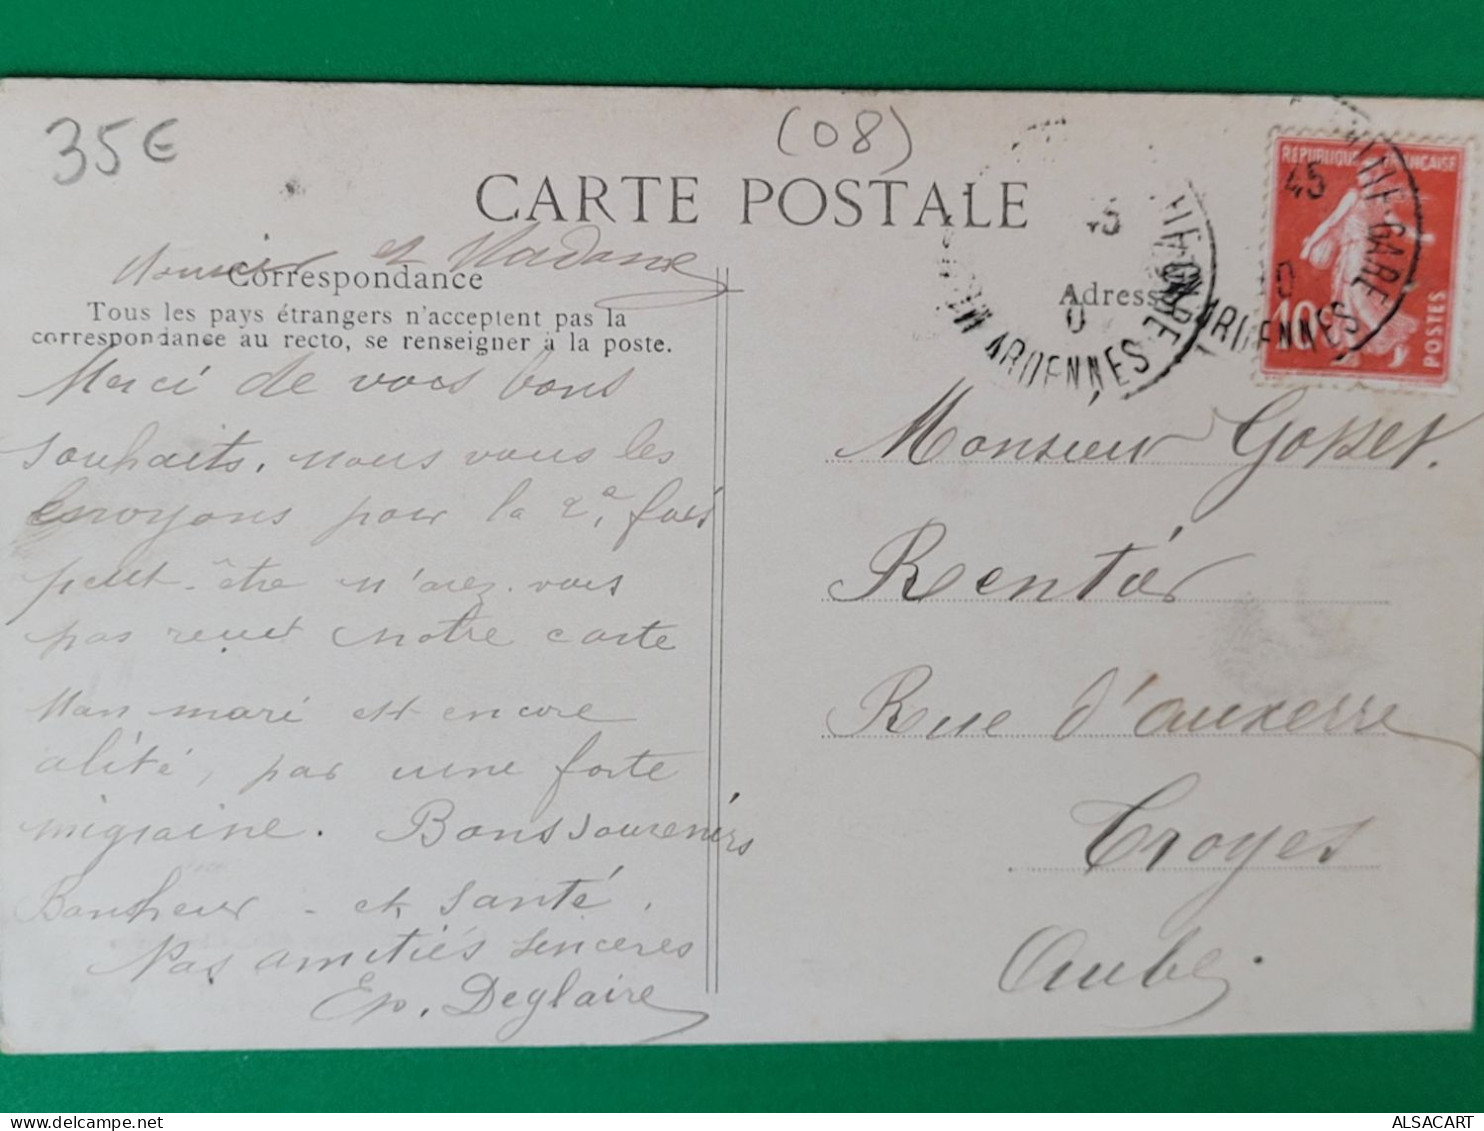 35€
(08)
CARTE POSTALE
Monsieur et Madame
Correspondance
Tous les pays étrangers n'acceptent pas la
correspondance au recto, se renseigner à la poste.
Merci de vocs bons
souhaits, nous vous les
envoyons pour la 2e, fois
peut-être n'avez-vous
pas reçut notre carte
Mon mari est encore
alité, par une forte
migraine. Bons souvenirs
Bonheur - et santé.
Nos amitiés sincères
Ep. Deglaire
Adresse
45
0
ARDENNES
RÉPUBLIQUE FRANÇAISE
10c
POSTES
45
0
GARE
ARDENNES
Monsieur Gosset.
Rentier
Rue d'auxerre
Troyes
Aube.
ALSACART